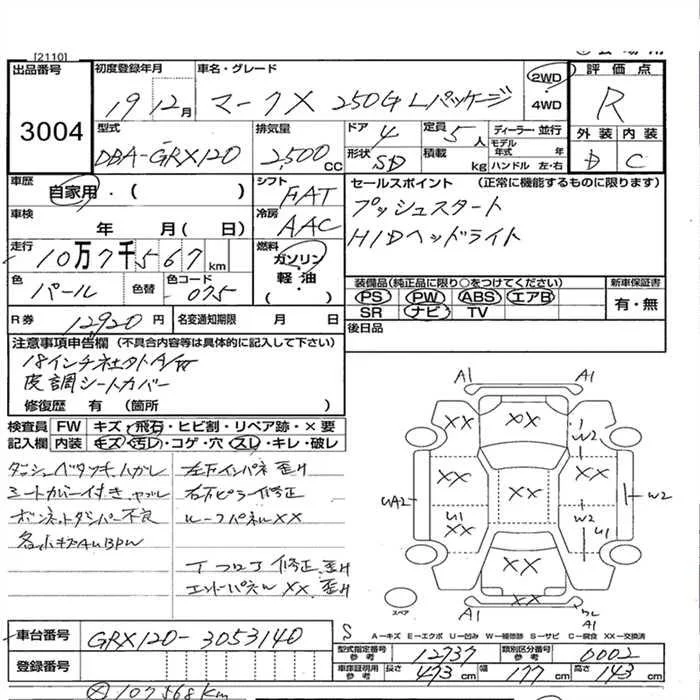 [2110]
出品番号
3004
初度登録年月
19 12月
車名・グレード
マークX 250G Lパッケージ
2WD
・
4WD
評価点
R
外装 内装
D C
型式
DBA-GRX120
排気量
2500 CC
ドア 4
定員 5人
形状 SD
積載 kg
ディーラー・並行
モデル年式 年
ハンドル 左・右
車歴
自家用・( )
シフト
FAT
セールスポイント (正常に機能するものに限ります)
プッシュスタート
HIDヘッドライト
車検
年 月( 日)
冷房
AAC
走行
10万7千567 km
燃料
ガソリン
軽油
( )
色
パール
色替
色コード
075
装備品(純正品に限り○をつけてください)
PS PW ABS エアB
SR ナビ TV
新車保証書
有・無
R券 12920円
名変通知期限 月 日
後日品
注意事項申告欄 (不具合内容等は具体的に記入して下さい)
18インチ社外A/W
皮調シートカバー
修復歴 有 (箇所 )
検査員 FW キズ・飛石・ヒビ割・リペア跡・×要
記入欄 内装 キズ・汚レ・コゲ・穴・スレ・キレ・破レ
ダッシュベタツキ、ハガレ
シートカバー付き、ヤブレ
ボンネットダンパー不良
各小キズAUBPW
左右インパネ 歪み
右Fピラー修正
ルーフパネルXX
修正、歪み
エンドパネルXX、歪み
A1 A1
XX XX W2
XX XX XX
UA2 W2
U1 XX W2 U1
XX
XX
A1 A1
スペア
A-キズ E-エクボ U-凹み W-補修跡 S-サビ C-腐食 XX-交換済
車台番号
GRX120-3053140
登録番号
型式指定番号 参考 12737
類別区分番号 参考 0002
車庫証明用 参考 長さ 473cm 幅 177cm 高さ 143cm
107568km